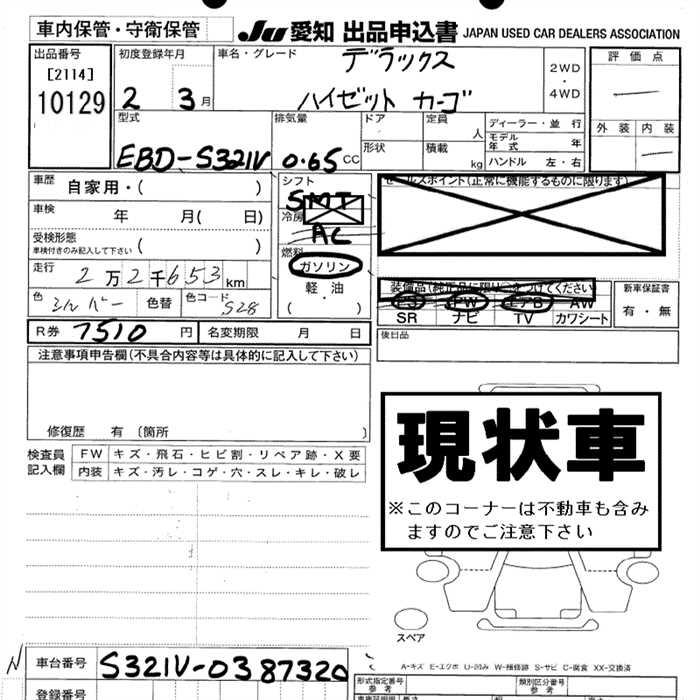 車内保管・守衛保管
JU 愛知 出品申込書 JAPAN USED CAR DEALERS ASSOCIATION
出品番号
[2114]
10129
初度登録年月
2 3月
車名・グレード
デラックス
ハイゼット カーゴ
2WD
・
4WD
評価点
外装 内装
型式
EBD-S321V
排気量
0.65 CC
ドア
形状
定員
人
積載
kg
ディーラー・並行
モデル年式 年
ハンドル 左・右
車歴 自家用・( )
車検 年 月( 日)
受検形態
車検付きのみ記入して下さい ( )
走行 2万2千653km
色 シルバー 色替 色コード S28
R券 7510 円 名変期限 月 日
シフト
5MT
冷房
AC
燃料
ガソリン
軽・油
( )
セールスポイント(正常に機能するものに限ります)
PS PW エアB AW
SR ナビ TV カワシート
新車保証書
有・無
後日品
注意事項申告欄(不具合内容等は具体的に記入して下さい)
修復歴 有〔箇所 〕
検査員記入欄
FW キズ・飛石・ヒビ割・リペア跡・X要
内装 キズ・汚レ・コゲ・穴・スレ・キレ・破レ
現状車
※このコーナーは不動車も含み
ますのでご注意下さい
スペア
A-キズ E-エクボ U-凹み W-補修跡 S-サビ C-腐食 XX-交換済
車台番号 S321V-0387320
登録番号
形式指定番号
参考
類別区分番号
参考